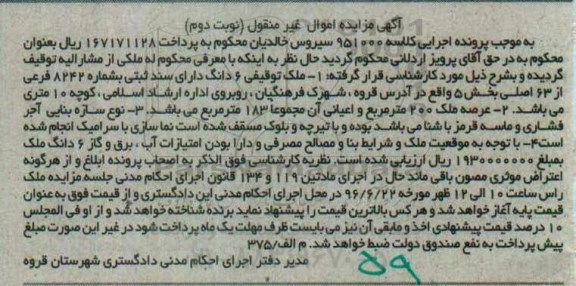 آگهی مزایده اموال غیر منقول (نوبت دوم)
به موجب پرونده اجرایی کلاسه ۹۵۱۰۰۰ سیروس خالدیان محکوم به پرداخت ۱۶۷۱۷۱۱۲۸ ریال بعنوان
محکوم به در حق آقای پرویز اردلانی محکوم گردید حال نظر به اینکه با معرفی محکوم له ملکی از مشارالیه توقیف
گردیده و بشرح ذیل مورد کارشناسی قرار گرفته: ۱- ملک توقیفی ۶ دانگ دارای سند ثبتی بشماره ۸۲۴۲ فرعی
از ۶۳ اصلی بخش ۵ واقع در آدرس قروه ، شهرک فرهنگیان ، روبروی اداره ارشاد اسلامی ، کوچه ۱۰ متری
می باشد. ۲- عرصه ملک ۲۰۰ مترمربع و اعیانی آن مجموعا ۱۸۳ مترمربع می باشد. ۳- نوع سازه بنایی آجر
فشاری و ماسه قرمز با شنا می باشد بوده و با تیرچه و بلوک مسقف شده است نما سازی با سرامیک انجام شده
است ۴- با توجه به موقعیت ملک و شرایط بنا و مصالح مصرفی و دارا بودن امتیازات آب ، برق و گاز ۶ دانگ ملک
بمبلغ ۱۹۳۰۰۰۰۰۰۰ ریال ارزیابی شده است. نظریه کارشناسی فوق الذکر به اصحاب پرونده ابلاغ و از هرگونه
اعتراض موثری مصون باقی ماند حال در اجرای مادتین ۱۱۹ و ۱۳۴ قانون اجرای احکام مدنی جلسه مزایده ملک
راس ساعت ۱۰ الی ۱۲ ظهر مورخه ۹۶/۶/۲۲ در محل اجرای احکام مدنی این دادگستری و از قیمت فوق به عنوان
قیمت پایه آغاز خواهد شد و هر کس بالاترین قیمت را پیشنهاد نماید برنده شناخته خواهد شد و از او فی المجلس
۱۰ درصد قیمت پیشنهادی اخذ و مابقی آن نیز می بایست ظرف مهلت یک ماه پرداخت شود در غیر این صورت مبلغ
پیش پرداخت به نفع صندوق دولت ضبط خواهد شد. م الف/۳۷۵
مدیر دفتر اجرای احکام مدنی دادگستری شهرستان قروه
۵۹